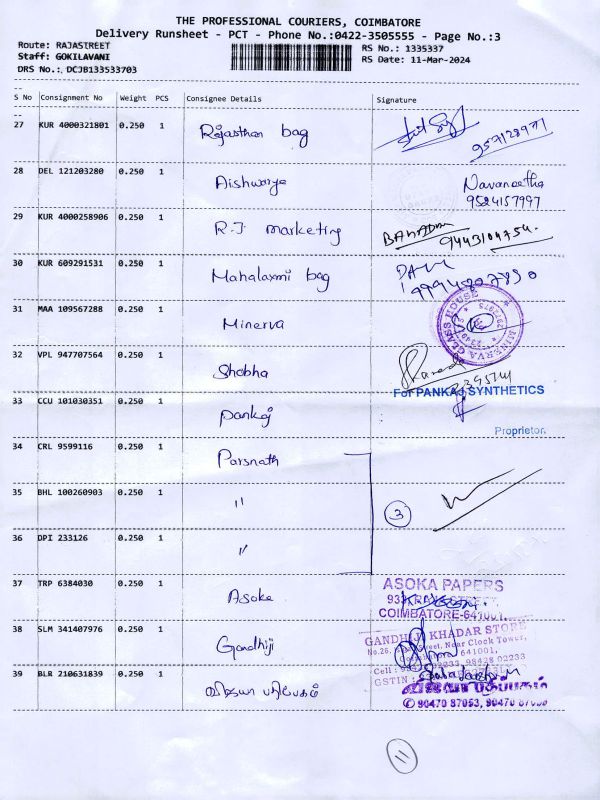 THE PROFESSIONAL COURIERS, COIMBATORE
Delivery Runsheet - PCT - Phone No.:0422-3505555 - Page No.:3
Route: RAJASTREET RS No.: 1335337
Staff: GOKILAVANI RS Date: 11-Mar-2024
DRS No.: DCJB133533703
S No Consignment No Weight PCS Consignee Details Signature
27 KUR 4000321801 0.250 1 Rajasthan bag
28 DEL 121203280 0.250 1 Aishwarya Navaneetha
9524157997
29 KUR 4000258906 0.250 1 R.J. marketing
9443104754.
30 KUR 609291531 0.250 1 Mahalaxmi bag
31 MAA 109567288 0.250 1 Minerva MINERVA GLASS HOUSE
32 VPL 947707564 0.250 1 Shobha
For PANKAJ SYNTHETICS
33 CCU 101030351 0.250 1 Pankaj
Proprietor.
34 CRL 9599116 0.250 1 Parsnath
35 BHL 100260903 0.250 1 " 3
36 DPI 233126 0.250 1 "
37 TRP 6384030 0.250 1 Asoka ASOKA PAPERS
COIMBATORE-641001.
38 SLM 341407976 0.250 1 Gandhiji GANDHIJI KHADAR STORE
No.26, Street, Near Clock Tower,
641001,
Cell : 98428 02233
GSTIN :
39 BLR 210631839 0.250 1 விஜயா பதிப்பகம் விஜயா பதிப்பகம்
90470 87053, 90470 87058
11